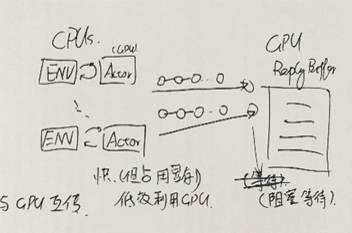 CPUs.
GPU
(GPU)
Reply Buffer
ENV
Actor
ENV
Actor
(等待)
快.(但占用显存)
(阻塞等待)
与GPU互传.
低效利用GPU.